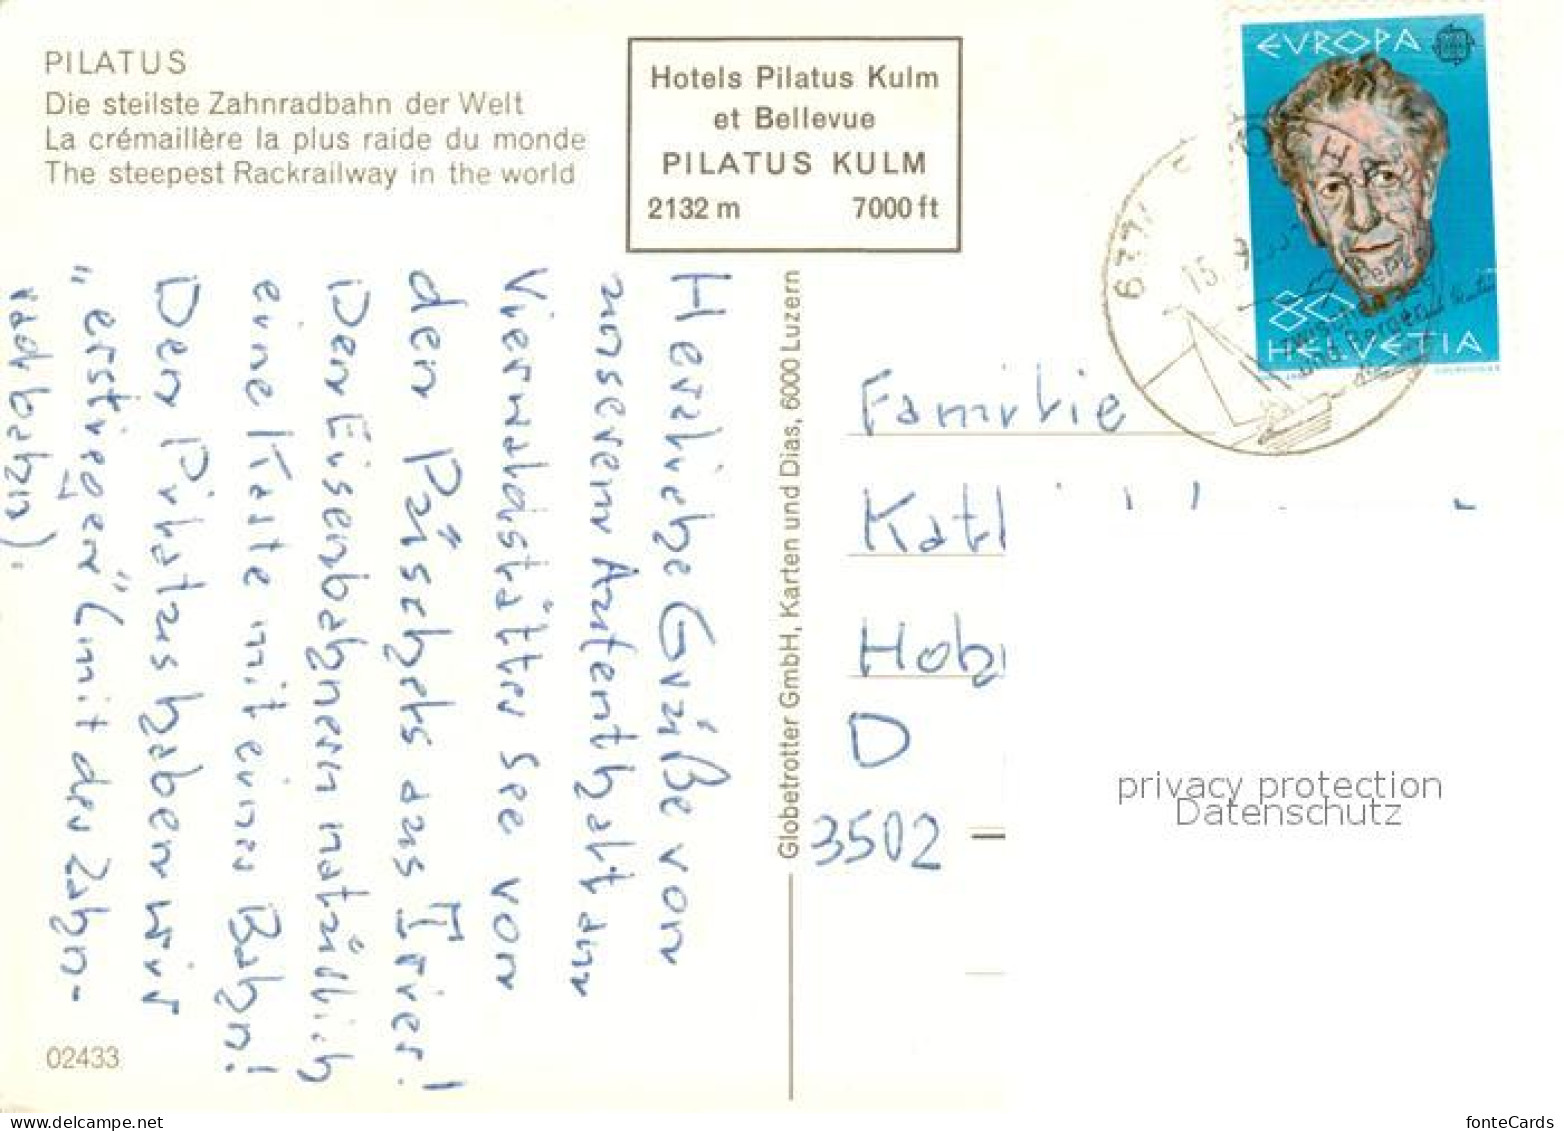 PILATUS
Die steilste Zahnradbahn der Welt
La crémaillère la plus raide du monde
The steepest Rackrailway in the world
Hotels Pilatus Kulm
et Bellevue
PILATUS KULM
2132 m 7000 ft
EVROPA
80
HELVETIA
Herzliche Grüße von
unserem Aufenthalt am
Vierwaldstätter See von
den Päschels aus Trier!
Den Eisenbahnern natürlich
eine Karte mit einer Bahn!
Den Pilatus haben wir
"erstiegen" (mit der Zahn-
radbahn)
Globetrotter GmbH, Karten und Dias, 6000 Luzern
Familie
D
3502
02433
privacy protection
Datenschutz
www.delcampe.net
fonteCards